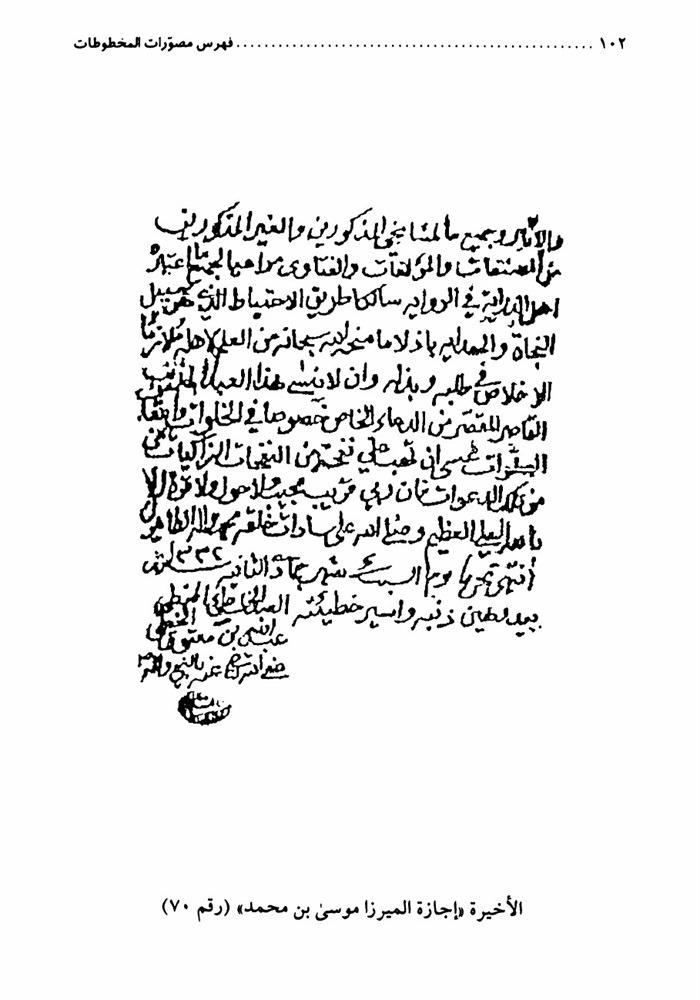 ١٠٢ ........................................ فهرس مصوّرات المخطوطات
وبجميع ما لمشايخي المذكورين والغير المذكورين
من المصنفات والمؤلفات والفتاوى
اهل الدراية في الرواية سالكا طريق الاحتياط الذي هو سبيل
النجاة والهداية باذلا ما منحه الله سبحانه من العلم لاهله ملازما
الاخلاص في طلبه وبذله وان لا ينسى هذا العبد المذنب
القاصر المقصر من الدعاء الخاص خصوصا في الخلوات
الصلوات عسى ان تهب علي نفحة من النفحات الزاكيات
من تلك الدعوات فان ربي قريب مجيب ولا حول ولا قوة الا
بالله العلي العظيم وصلى الله على سادات خلقه محمد واله الطاهرين
يوم السبت شهر جماد الثانيه
بيد رهين ذنبه واسير خطيئته العبد
عبد بن
الأخيرة «إجازة الميرزا موسىٰ بن محمد» (رقم ٧٠)